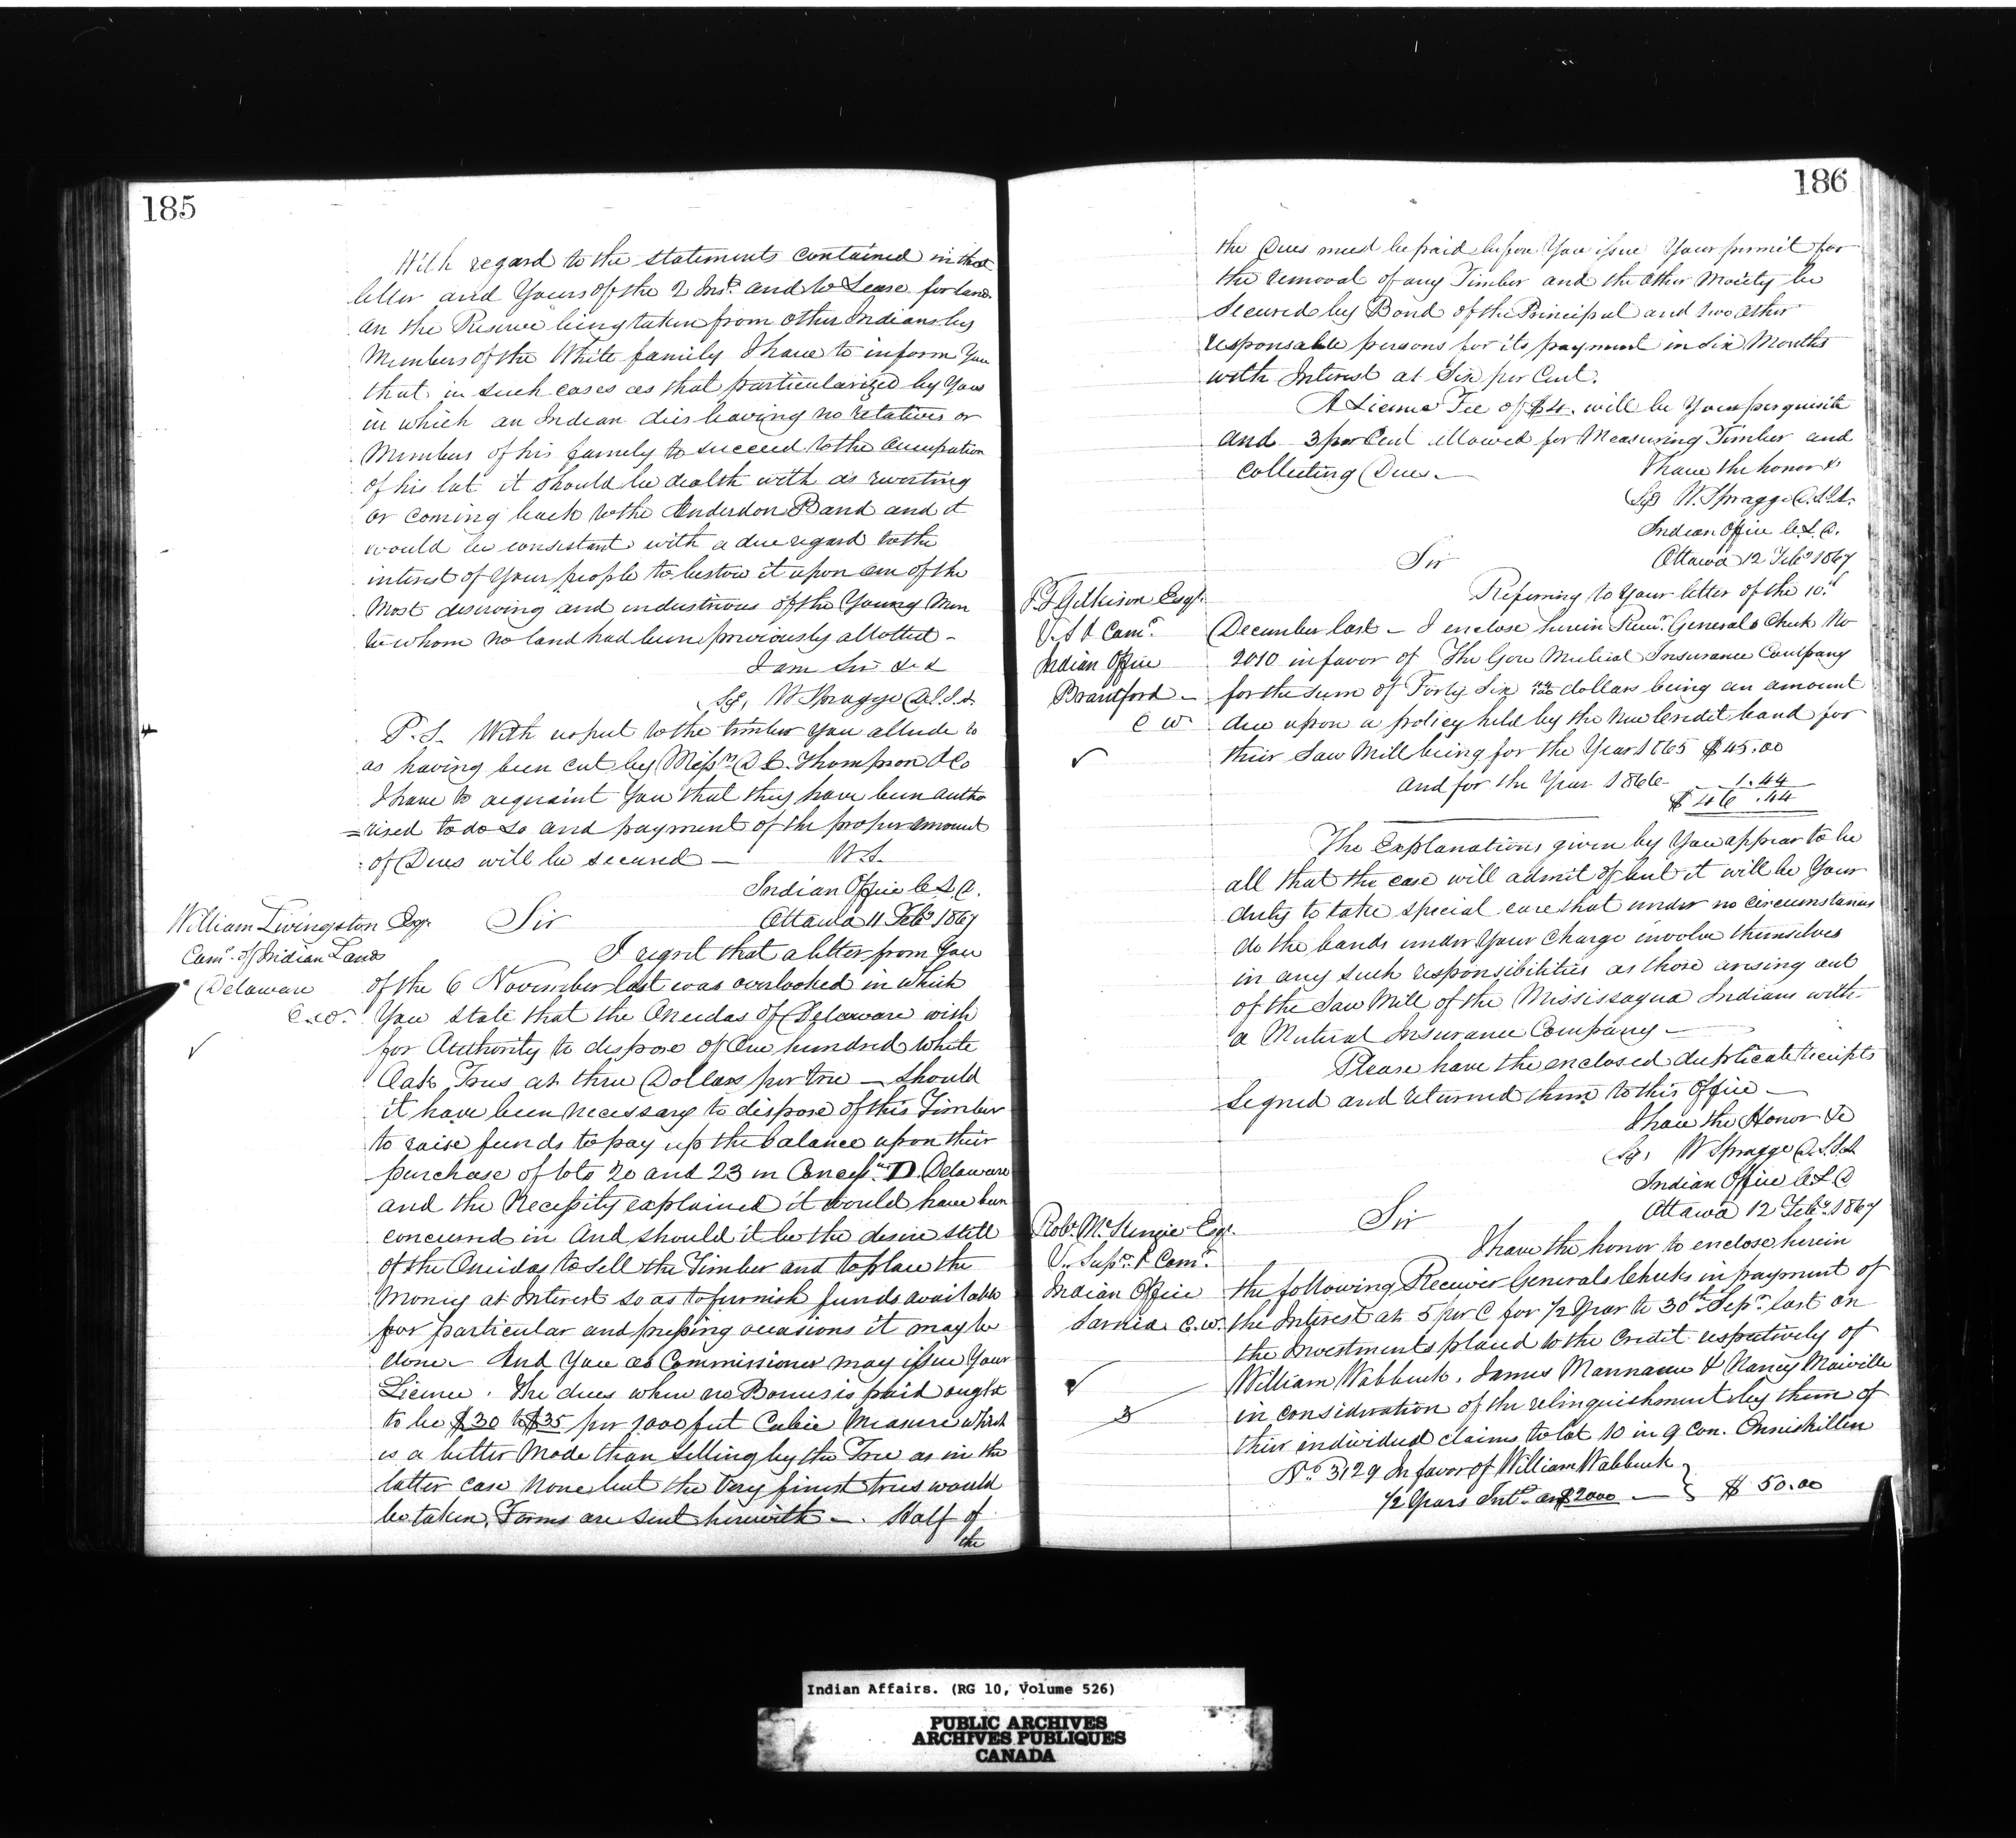 185
With regard to the statements contained in that
letter and Yours of the 2 Inst. and to Lease for land
on the Reserve being taken from other Indians by
Members of the White family I have to inform You
that in such cases as that particularized by You
in which an Indian dies leaving no relatives or
Members of his family to succeed to the occupation
of his lot it should be dealth with as reverting
or coming back to the Anderdon Band and it
would be consistant with a due regard to the
interest of Your people to bestow it upon one of the
Most deserving and industrious of the Young Men
to whom no land had been previously allotted -
I am Sir &c &
Sg, W Spragge D.S.I.A
P.S. With respect to the timber You allude to
as having been cut by Messrs D C. Thompson & Co
I have to acquaint You that they have been autho
=rised to do so and payment of the proper amount
of Dues will be secured - W.S.
Indian Office C.L.D.
Ottawa 11 Feby 1867
William Livingston Esqr.
Comr. of Indian Lands
Delaware
C.W.
Sir
I regret that a letter from You
of the 6 November last was overlooked in which
You state that the Oneidas of Delaware wish
for Authority to dispose of One hundred White
Oak Trees at three Dollars per tree - Should
it have been necessary to dispose of this Timber
to raise funds to pay up the balance upon their
purchase of lots 20 and 23 in Concessn. D. Delaware
and the Necessity explained it would have been
concurred in And should it be the desire still
of the Oneidas to sell the Timber and to place the
Money at Interest so as to furnish funds available
for particular and pressing occasions it may be
done - And You as Commissioner may issue Your
Licence. The dues when no Bonus is paid ought
to be $30 to $35 per 1000 feet Cubic Measure which
is a better Mode than selling by the Tree as in the
latter case None but the Very finest trees would
be taken. Forms are sent herewith -. Half of
the
186
the Dues must be paid before You issue Your permit for
the removal of any Timber and the other Moiety be
Secured by Bond of the Principal and two other
responsable persons for its payment in Six Months
with Interest at Six per Cent.
A License Fee of $4. will be Your perquisite
and 3 per Cent allowed for Measuring Timber and
Collecting Dues. -
I have the honor &
Sg W. Spragge D.S.I.A.
Indian Office C.L.D.
Ottawa 12 Feby 1867
J.T Gilkison Esqr.
V.S & Comr.
Indian Office
Brantford -
C W
Sir
Referring to Your letter of the 10th
December last - I enclose herein Recr. Generals Check No
2010 in favor of The Gore Mutual Insurance Company
for the sum of Forty Six 44/100 dollars being an amount
due upon a policy held by the New Credit band for
their Saw Mill being for the Year 1865 $45.00
and for the Year 1866 - 1.44
$46.44
The Explanations given by You appear to be
all that the case will admit of but it will be Your
duty to take special care that under no circumstances
do the bands under Your Charge involve themselves
in any such responsibilities as those arising out
of the Saw Mill of the Mississagua Indians with
a Mutual Insurance Company -
Please have the enclosed duplicate receipts
Signed and returned them to this Office -
I have the Honor &c
Sg, W Spragge D.S.I.A
Indian Office C.L.D
Ottawa 12 Feby. 1867
Robt. McKenzie Esqr.
V. Supt. & Comr.
Indian Office
Sarnia C.W.
3
Sir
I have the honor to enclose herein
the following Receiver Generals Checks in payment of
the Interest at 5 per C for 1/2 Year to 30th Sepr. last on
the investments placed to the Credit respectively of
William Wabbuck, James Mannanu & Nancy Maiville
in consideration of the relinquishment by them of
their individual claims to lot 10 in 9 Con. Enniskillen
No. 3129 In favor of William Wabbuck
1/2 Years Intt. on $2000 - } $ 50.00
Indian Affairs. (RG 10, Volume 526)
PUBLIC ARCHIVES
ARCHIVES PUBLIQUES
CANADA